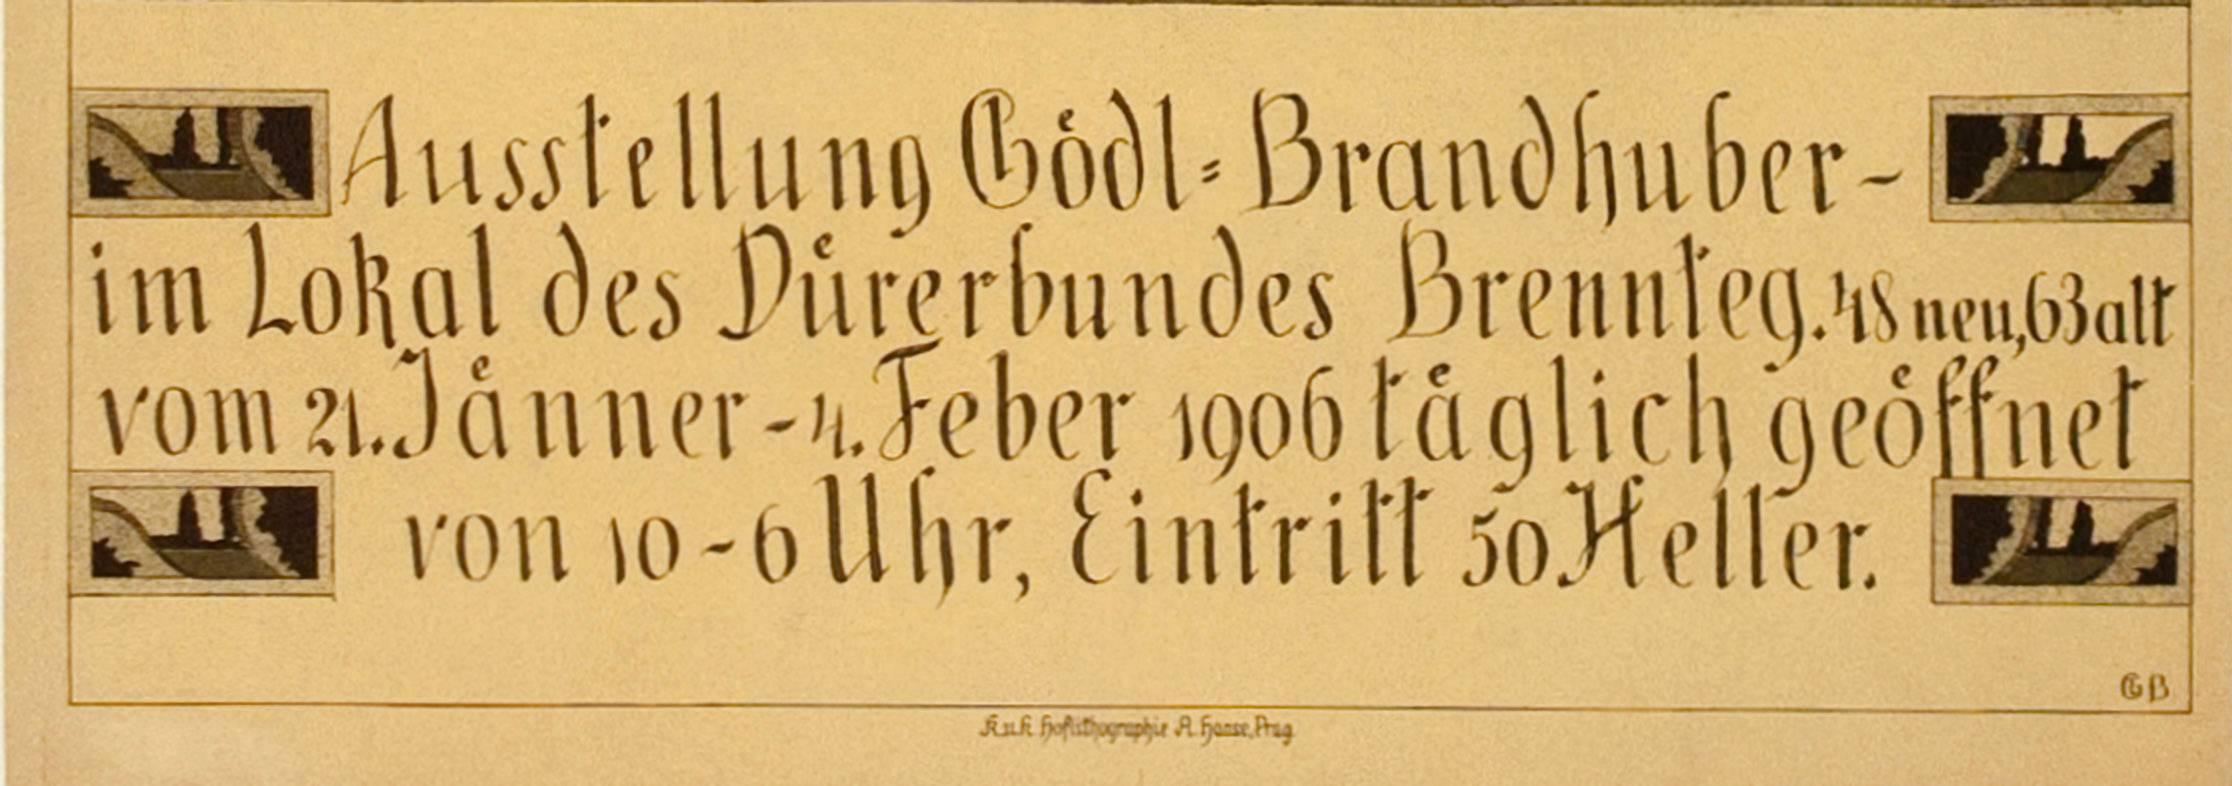 Ausstellung Gödl=Brandhuber-
im Lokal des Dürerbundes Brennteg. 48 neu, 63 alt
vom 21. Jänner - 4. Feber 1906 täglich geöffnet
von 10 - 6 Uhr, Eintritt 50 Heller.
GB
K.u.k. Hoflithographie A. Haase, Prag.